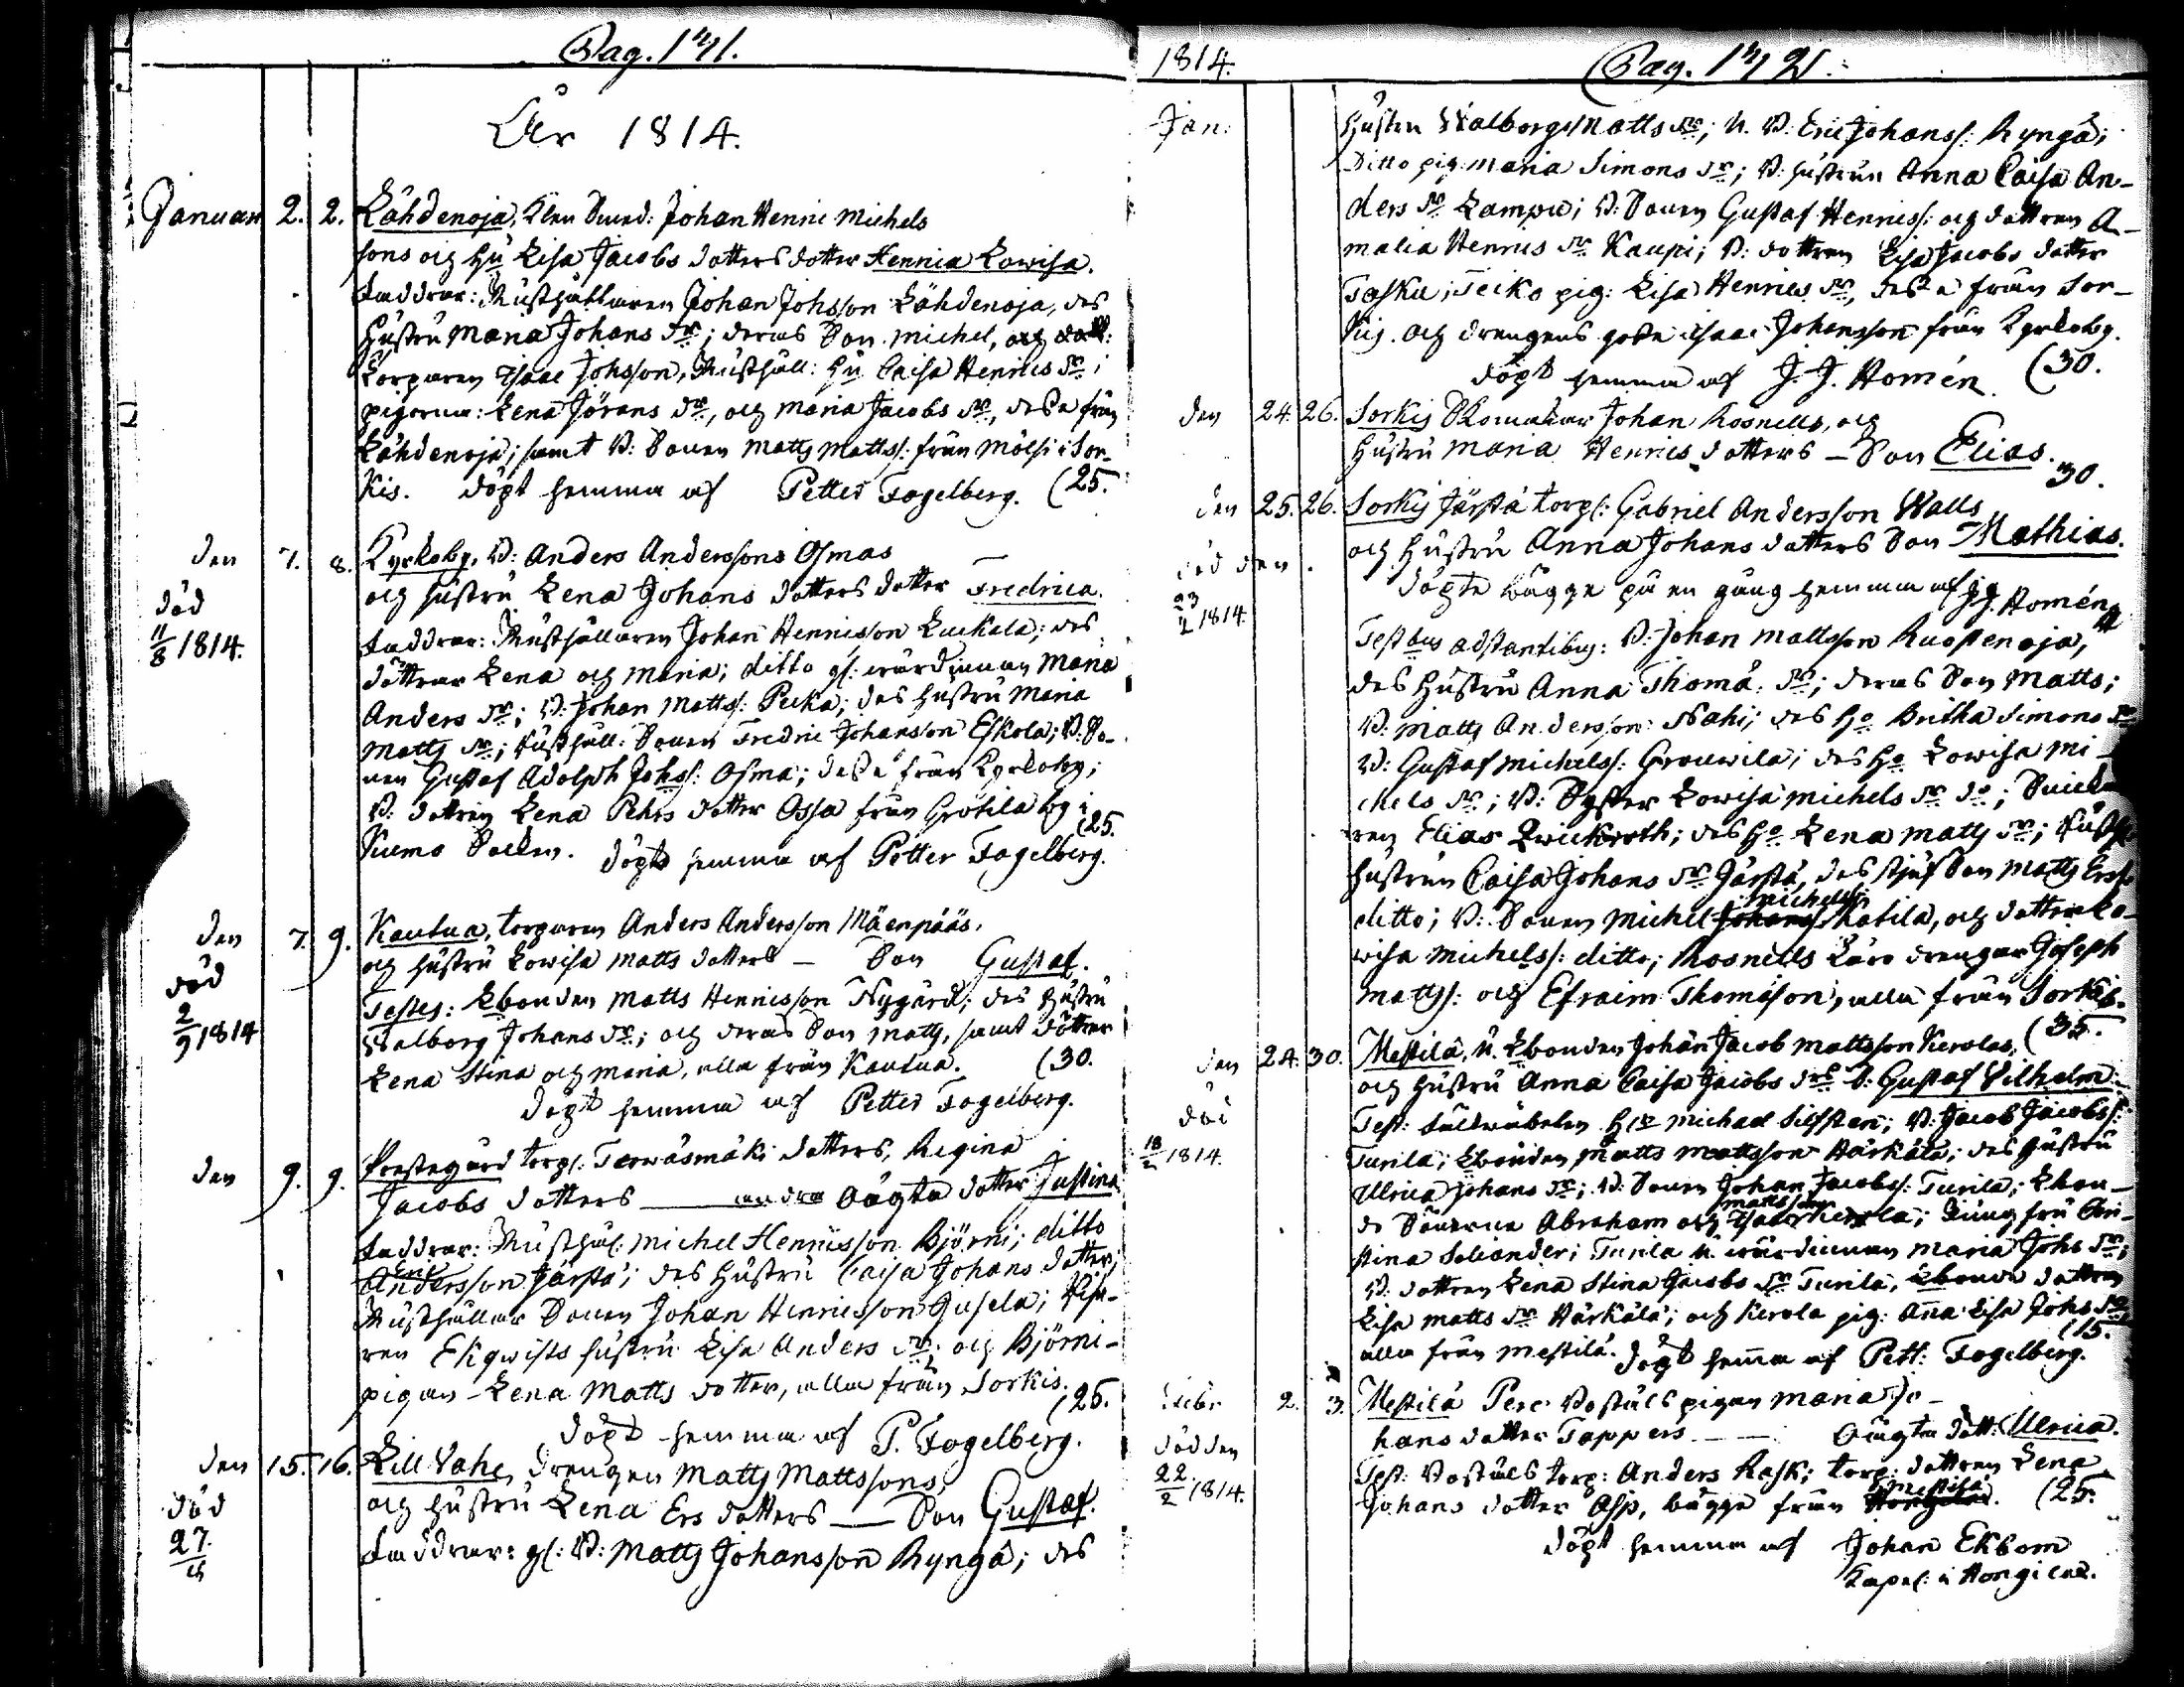 Pag. 171.
År 1814.
Januari 2. 2. Lähdenoja, Klen Smed: Johan Henric Michels
sons och Hu Lisa Jacobs dotters dotter Hennica Lowisa.
Faddrar: Rusthållaren Johan Johsson Lähdenoja, des
Hustru Maria Johans dr; deras Son Michel, och dott:
Torparen Isaac Johsson, Rusthåll: Hu Caisa Henrics dr;
pigorna: Lena Jörans dr, och Maria Jacobs dr, desse från
Lähdenoja; samt B: Sonen Matts Mattss: från Mölsi i Sor-
kis. döpt hemma af Petter Fogelberg. (25.
den 7. 8. Kyrkoby, B: Anders Anderssons Osmas
och hustru Lena Johans dotters dotter Fredrica.
död 11/8 1814.
Faddrar: Rusthållaren Johan Henricsson Luckala; des
döttrar Lena och Maria; ditto gl: wärdinnan Maria
Anders dr; B: Johan Mattss: Pecka; des hustru Maria
Matts dr; Rusthåll: Sonen Fredric Johansson Eskola; B: So-
nen Gustaf Adolph Johss: Osma; desse från Kyrkoby;
B: dottren Lena Pehrs dotter Ossa från Grötila by i
Kumo Socken. döpt hemma af Petter Fogelberg. (25.
den 7. 9. Kautua, torparen Anders Andersson Mäenpääs,
och hustru Lowisa Matts dotters — Son Gustaf.
död 2/9 1814
Testes: Åbonden Matts Henricsson Nygård; des hustru
Walborg Johans dr; och deras Son Matts, samt döttrar
Lena Stina och Maria, alla från Kautua. (30.
döpt hemma af Petter Fogelberg.
den 9. 9. Prestegård torps: Terwäsmäki dotters, Regina
Jacobs dotters — andra Oägta dotter Justina
Faddrar: Rusthål: Michel Henricsson Björni; ditto
Eric
Andersson Järstä; des Hustru Caisa Johans dotter;
Rusthållar Sonen Johan Henricsson Gusela;
ren Ekqwists hustru Lisa Anders dr; och Björni-
pigan Lena Matts dotter, alla från Sorkis. (25.
döpt hemma af P. Fogelberg.
den 15. 16. Lill Vahe, drengen Matts Mattssons,
och hustru Lena Ers dotters — Son Gustaf.
död 27.
Faddrar: gl: B: Matts Johansson Ryngä; des
1814. Pag. 172.
Jan: Hustru Walborg Matts dr; U. B: Eric Johanss: Ryngä;
Ditto pig: Maria Simons dr; B: hustrun Anna Caisa An-
ders dr Lampu; B: Sonen Gustaf Henricss: och dottren A-
malia Henrics dr Kaupi; B: dottren Lisa Jacobs dotter
Tasku; Teiko pig: Lisa Henrics dr, desse från Sor-
kis. och drengens gosse Isaac Johansson från Kyrkoby.
döpt hemma af J. J. Homén. (30.
den 24. 26. Sorkis Skomakar Johan Rosnells, och
Hustru Maria Henrics dotters — Son Elias.
30.
den 25. 26. Sorkis Järstä torps: Gabriel Andersson Walls
och Hustru Anna Johans dotters Son Mathias.
död den 23/2 1814.
döpte bägge på en gång hemma af J.J. Homén
Testibus adstantibus: B: Johan Mattsson Ruostenoja,
des Hustru Anna Thomæ dr; deras Son Matts;
B: Matts Andersson Nahi; des Ho Britha Simons dr
B: Gustaf Michelss: Grouwila; des Ho Lowisa Mi-
chels dr; B: Syster Lowisa Michels dr do;
ren Elias Qwickroth; des Ho Lena Matts dr; Rusth
hustrun Caisa Johans dr Järstä, des stjuf Son Matts Erss
Michelss:
ditto; B: Sonen Michel Johans Katila, och dotter Lo-
wisa Michelss: ditto; Rosnells Läro drengar Joseph
Mattss: och Efraim Thomæson, alla från Sorkis.
(35.
den 24. 30. Mestilä, U. Åbonden Johan Jacob Mattsson Kerolas,
och Hustru Anna Caisa Jacobs drs S: Gustaf Vilhelm
död 18/2 1814.
Test: Fältwäbelen Hr Michael Silfsten; B: Jacob Jacobss:
Turila; Åbonden Matts Mattsson Härkälä; des Hustru
Ulrica Johans dr; B: Sonen Johan Jacobss: Turila; Åbon-
Mattsson
de Sönerna Abraham och Isac Kerola; Jungfru Chri-
stina Seliander; Turila U. wärdinnan Maria Johs dr;
B: dottren Lena Stina Jacobs dr Turila, Åbonde dottren
Lisa Matts dr Härkälä; och Kerola pig: Anna Lisa Johs dr
alla från Mestilä. döpt hemma af Pett: Fogelberg. (15.
Febr: 2. 3. Mestilä Perc: Boställs pigan Maria Jo-
hans dotter Tappers — Oägta Dott: Ulrica.
död den 22/2 1814.
Test: Boställs torp: Anders Rask; torp: dottren Lena
Mestilä
Johans dotter Asp, bägge från Hongilax. (25.
döpt hemma af Johan Ekbom
Kapel: i Hongilax.